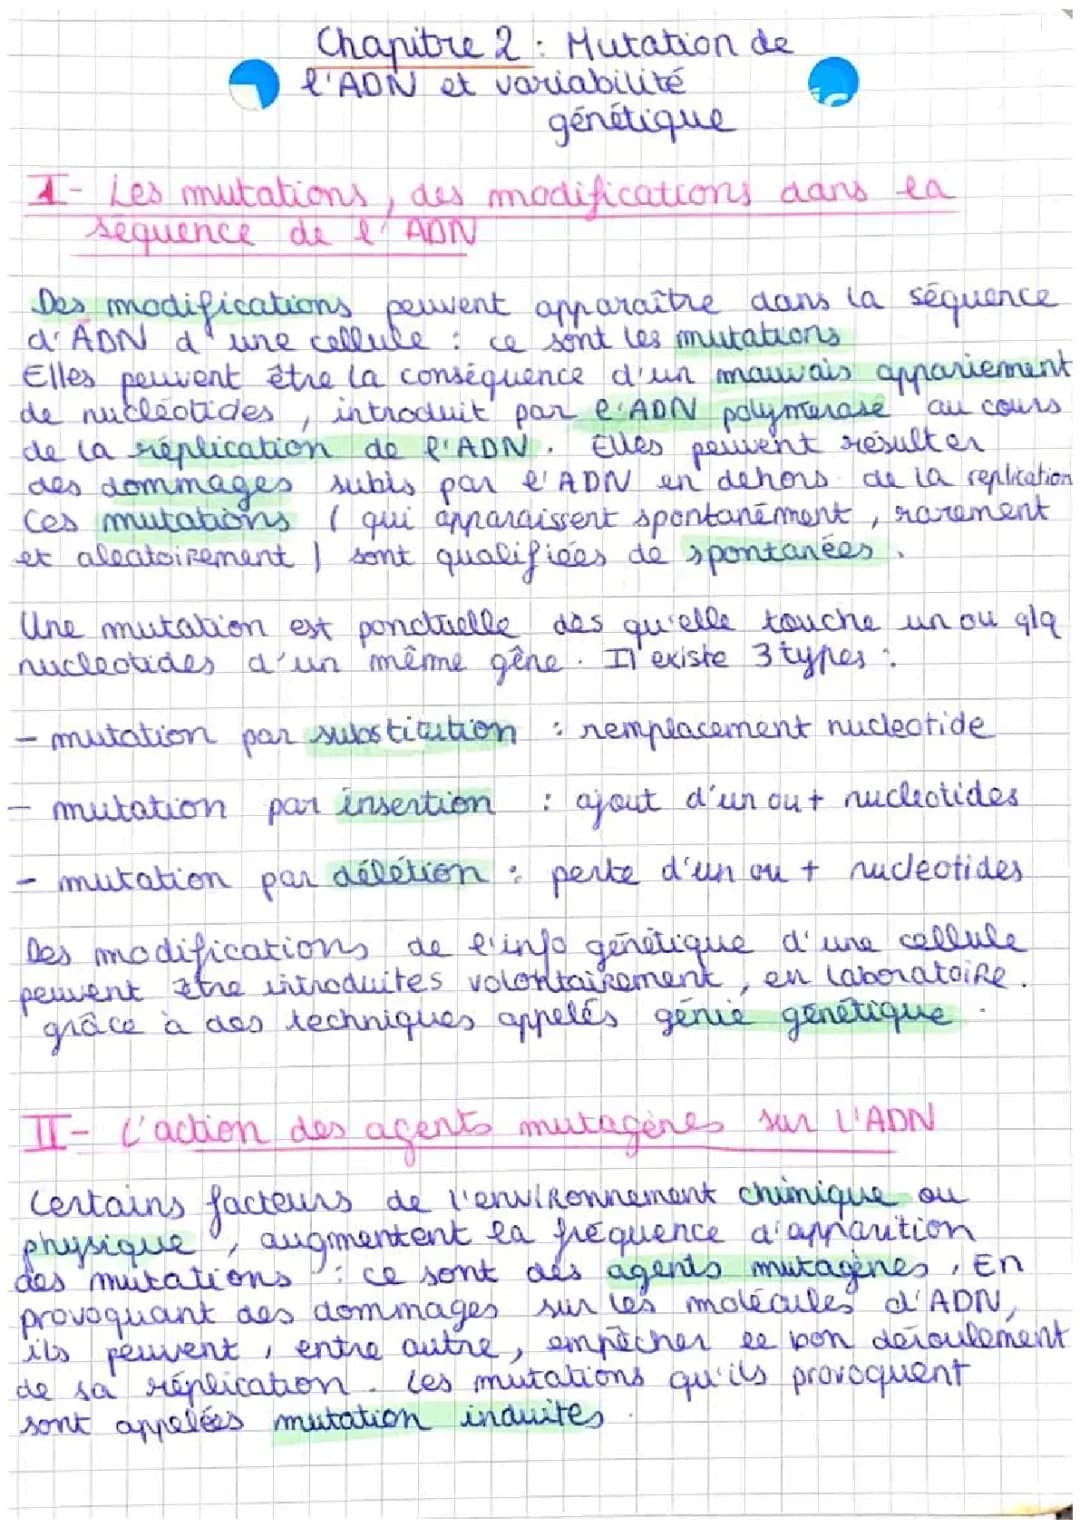 Chapitre 2 : Mutation de
l'ADN et variabilité
génétique
I- Les mutations, des modifications dans la
séquence de l'ADN
Des modifications peuvent apparaître dans la séquence
d'ADN d'une cellule : ce sont les mutations
Elles peuvent être la conséquence d'un mauvais appariement
de nucléotides, introduit par l'ADN polymerase au cours
de la réplication de l'ADN. Elles peuvent résulter
des dommages subis par l'ADN en dehors de la replication
Ces mutations ( qui apparaissent spontanément, rarement
et aleatoirement ) sont qualifiées de spontanées.
Une mutation est ponctuelle dès qu'elle touche un ou qlq
nucleotides d'un même gène. Il existe 3 types :
- mutation par substitution : remplacement nucleotide
- mutation par insertion : ajout d'un ou + nucleotides
- mutation par délétion : perte d'un ou + nucleotides
Des modifications de l'info génétique d'une cellule
peuvent être introduites volontairement, en laboratoire.
grâce à des techniques appelés génie génétique.
II- L'action des agents mutagènes sur l'ADN
Certains facteurs de l'environnement chimique ou
physique, augmentent la fréquence d'apparition
des mutations : ce sont des agents mutagènes. En
provoquant des dommages sur les molécules d'ADN,
ils peuvent, entre autre, empêcher le bon déroulement
de sa réplication. Les mutations qu'ils provoquent
sont appelées mutation induites.